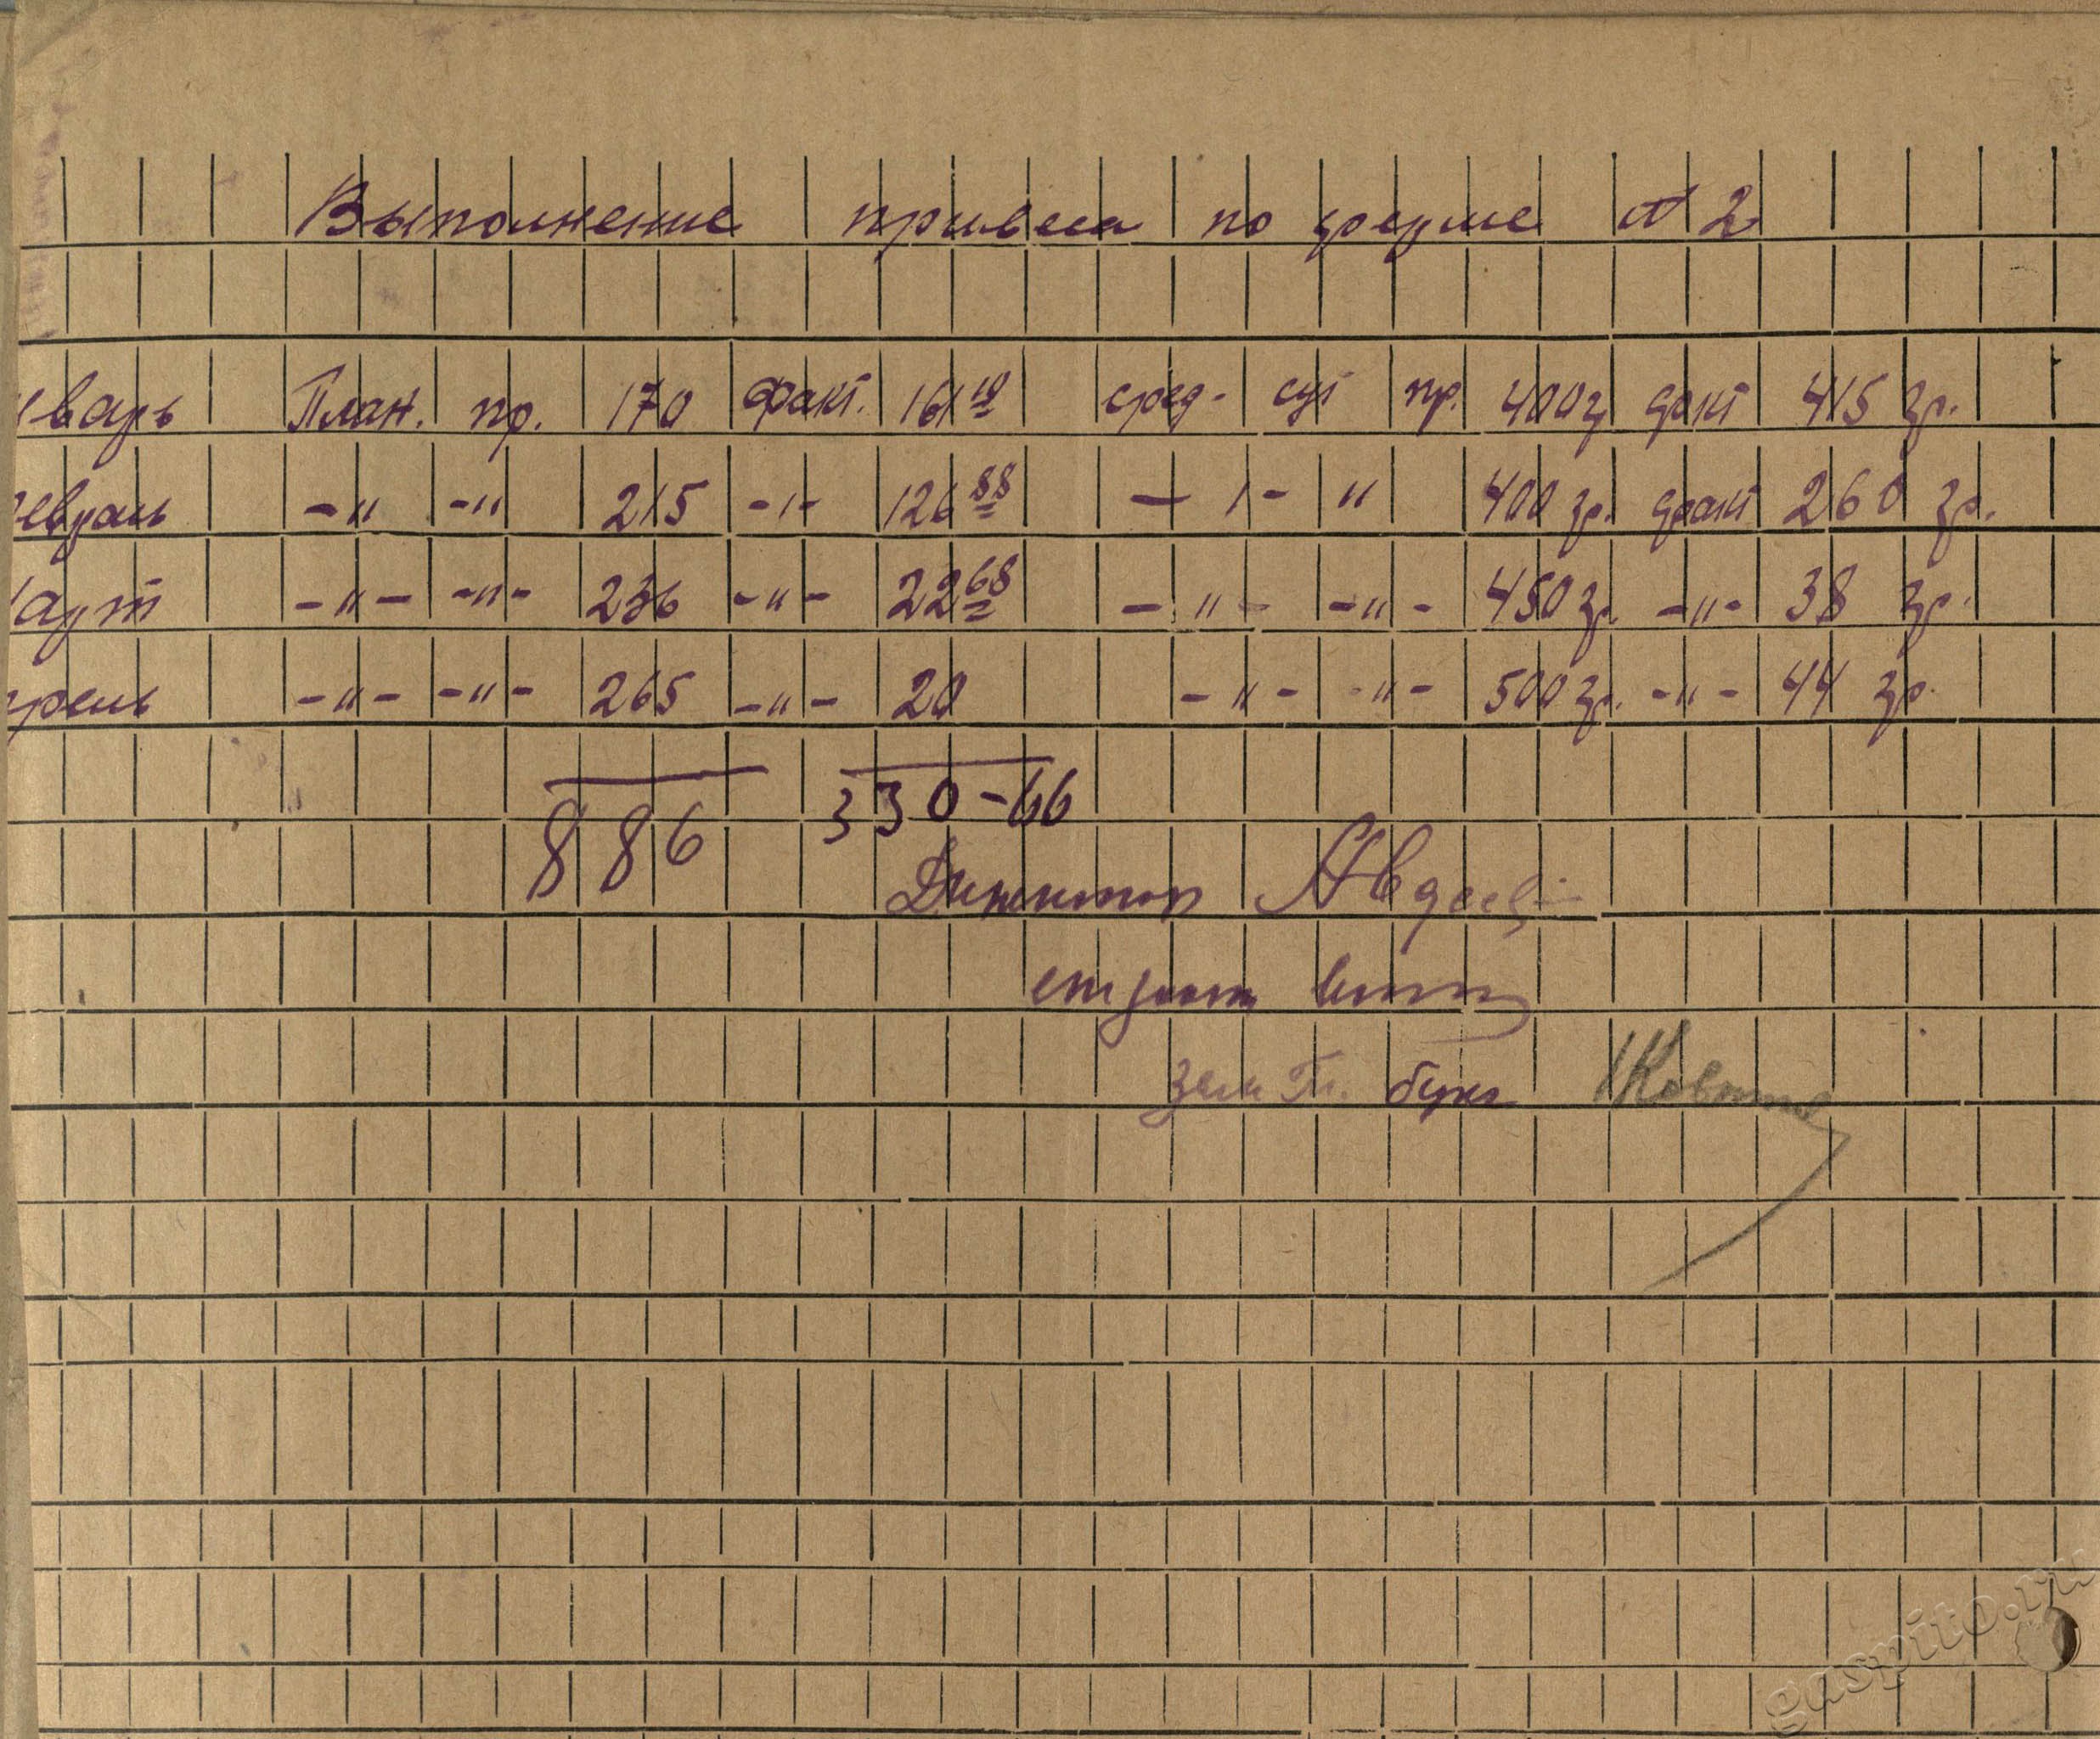 Выполнение привеса по ферме № 2
нварь План. пр. 170 факт. 161 10 сред- сут пр. 400 г факт 415 гр.
евраль -"- -"- 215 -"- 126 88 -"- " 400 гр. факт 260 гр.
арт -"- -"- 236 -"- 22 68 -"- -"- 450 гр. -"- 38 гр.
прель -"- -"- 265 -"- 20 -"- -"- 500 гр. -"- 44 гр.
886 330-66
Директор Авдеев
зам Гл. бухг
gaspito.ru